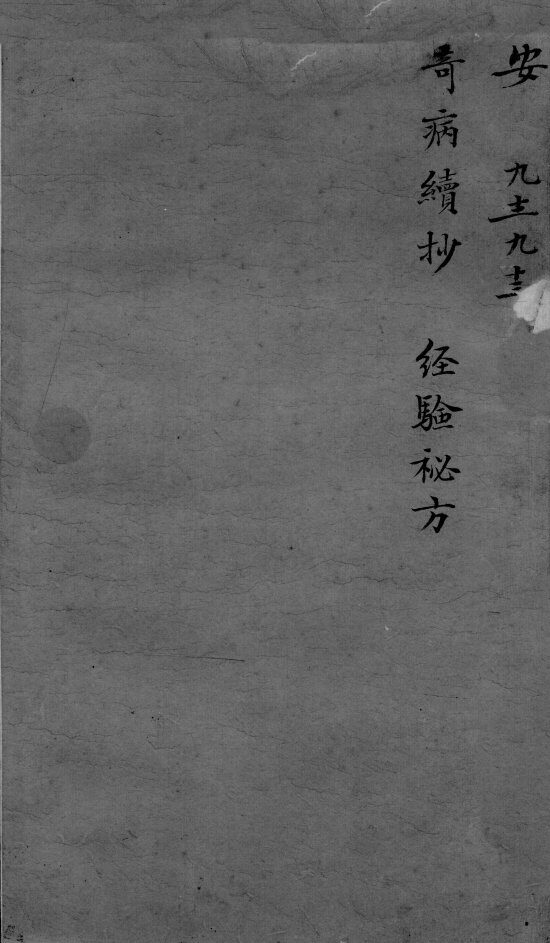 安 九十二 九十三
奇病續抄 経驗秘方